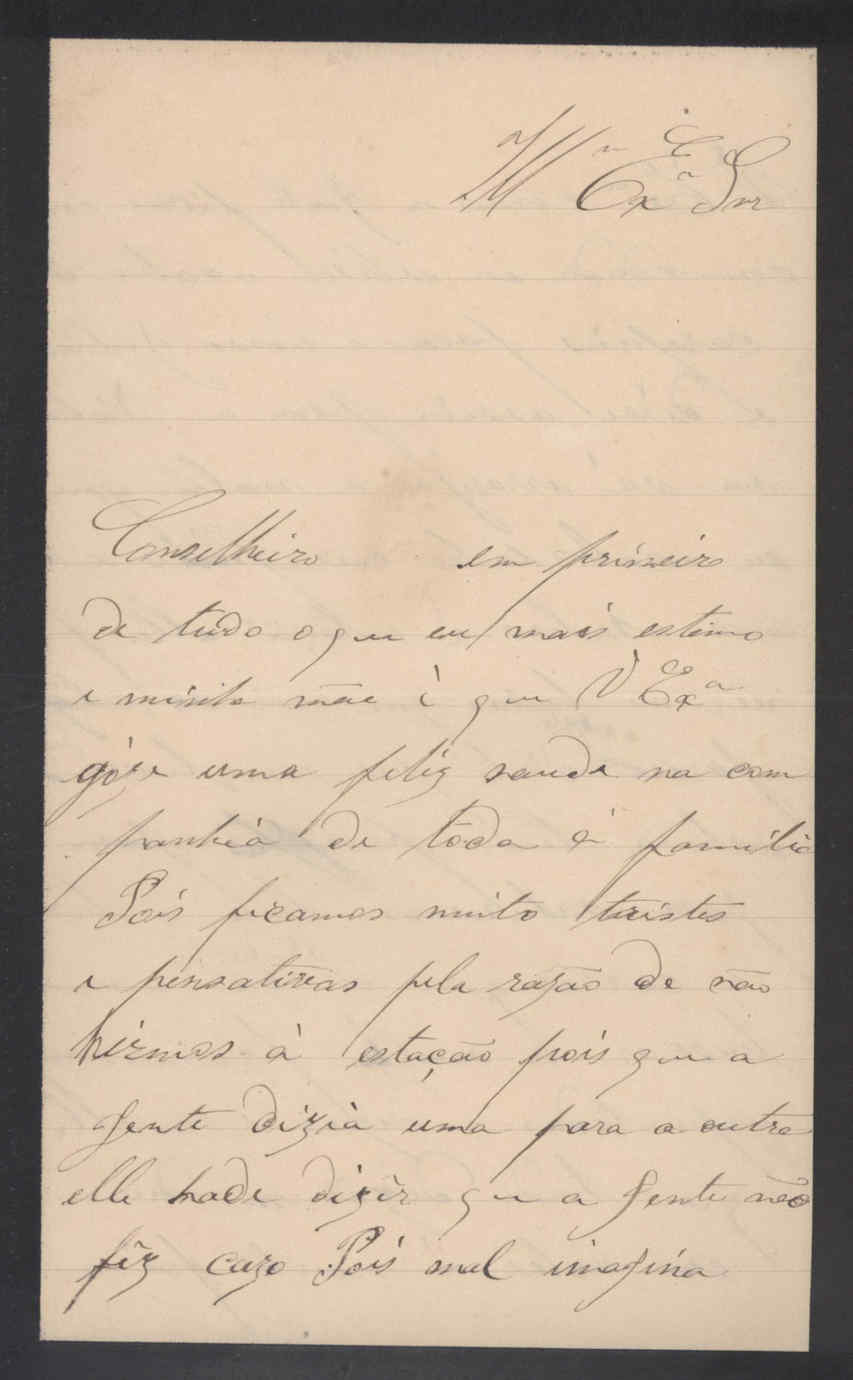 Illmo Exmo Snr
Conselheiro em primeiro
de tudo o que eu mais estimo
e minha mãe é que V Exa
góze uma feliz saude na com
panhia de toda á familia
Pois ficamos muito tristes
e pensativas pela razão de não
hirmos á estação pois que a
gente dizia uma para a outra
elle hade dizêr que a gente não
fêz cazo Pois mal imagina